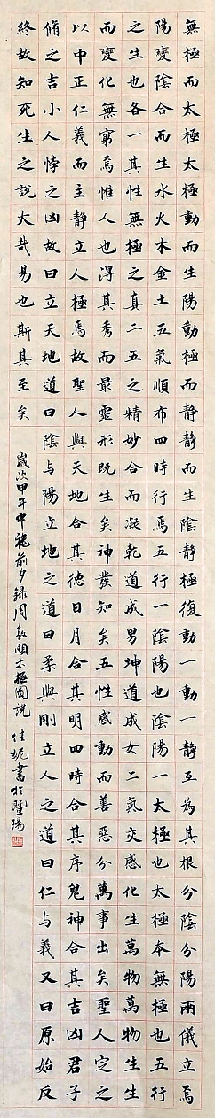 無極而太極太極動而生陽動極而靜靜而生陰靜極復動一動一靜互為其根分陰分陽兩儀立焉
陽變陰合而生水火木金土五氣順布四時行焉五行一陰陽也陰陽一太極也太極本無極也五行
之生也各一其性無極之真二五之精妙合而凝乾道成男坤道成女二氣交感化生萬物萬物生生
而變化無窮焉惟人也得其秀而最靈形既生矣神發知矣五性感動而善惡分萬事出矣聖人定之
以中正仁義而主靜立人極焉故聖人與天地合其德日月合其明四時合其序鬼神合其吉凶君子
脩之吉小人悖之凶故曰立天地道曰陰与陽立地之道曰柔與剛立人之道曰仁与義又曰原始反
終故知死生之說大哉易也斯其至矣
歲次甲午中秋前夕錄周敦頤太極圖說 佳妮書於暨陽